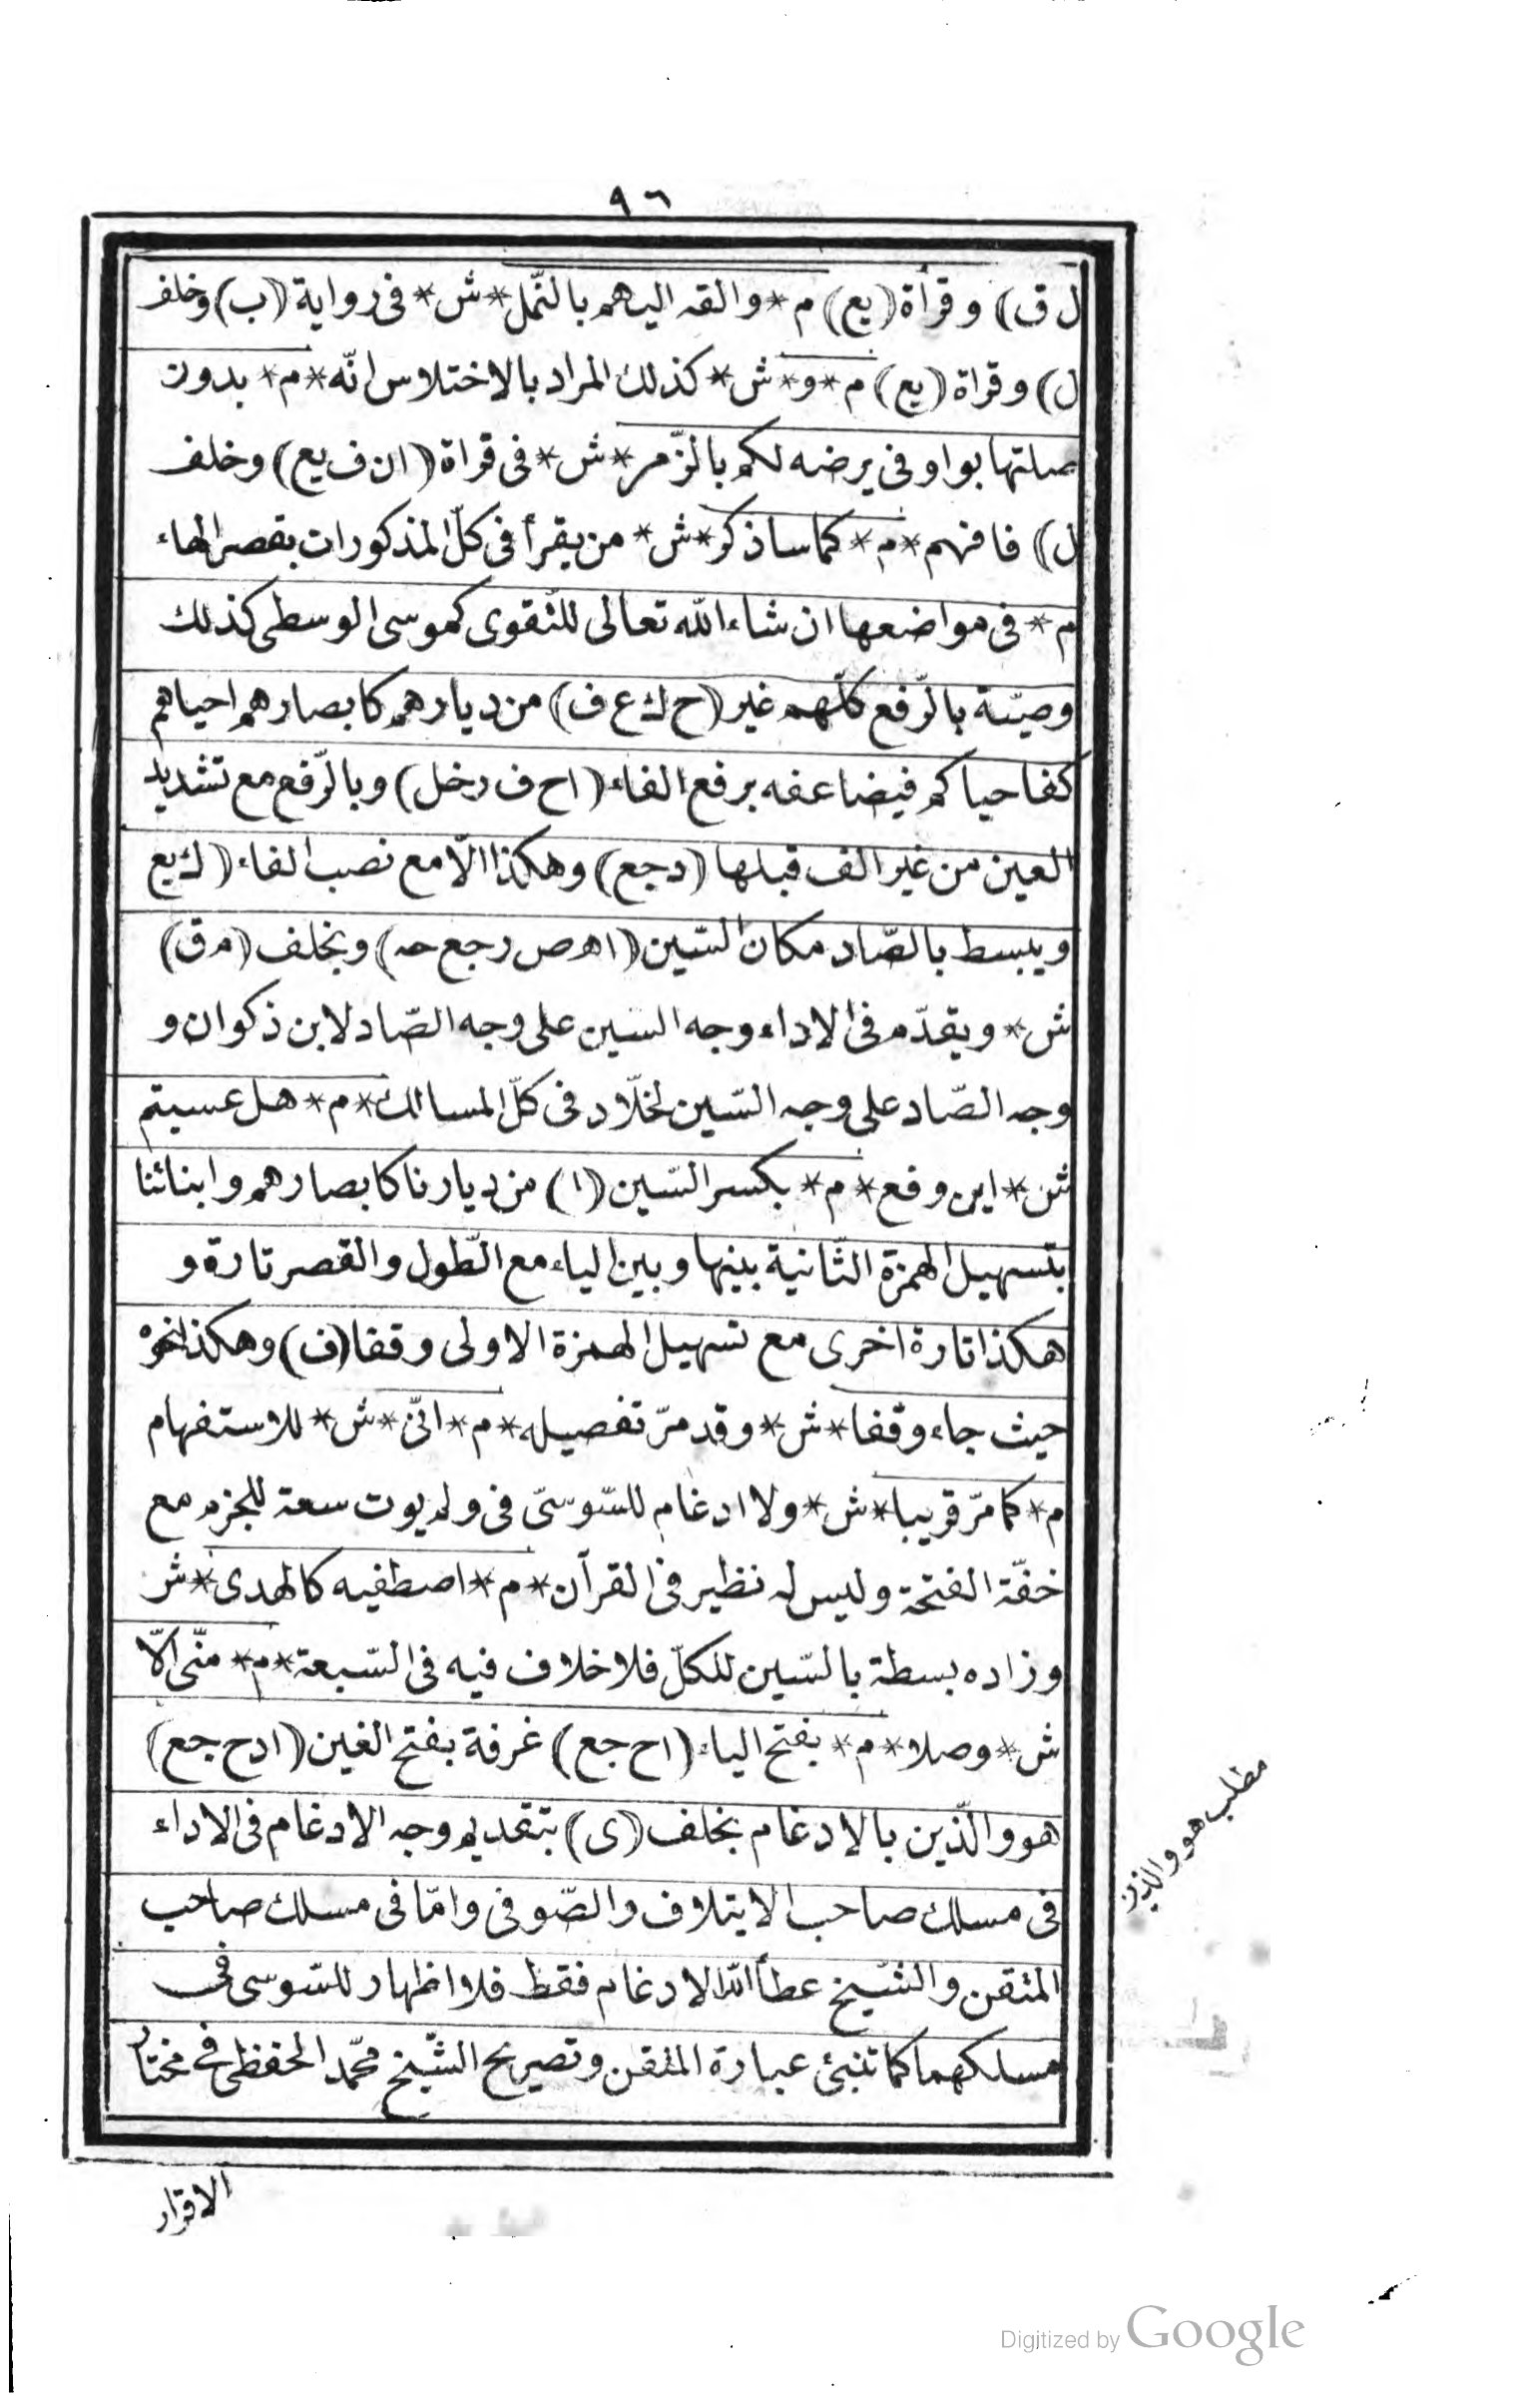 ٩٦
ل ق) وقرأة (يع) م* والقه اليهم بالنّمل* ش* فى رواية (ب) وخلف
ل) وقراة (يع) م* و* ش* كذلك المراد بالاختلاس انّه* م* بدون
صلتها بواو وفى يرضه لكم بالزّمر* ش* فى قراة (ان ف يع) وخلف
ل) فافهم* م* كما ساذكر* ش* من يقرأ فى كلّ المذكورات بقصر الهاء
م* فى مواضعها ان شاء اللّه تعالى للتّقوى كموسى الوسطى كذلك
وصيّة بالرّفع كلّهم غير (ح ك ع ف) من ديارهم كابصارهم احياهم
كفاحياكم فيضاعفه برفع الفاء (اح ف رخل) وبالرّفع مع تشديد
العين من غير الف قبلها (دجع) وهكذا الّا مع نصب الفاء (ك يع
ويبسط بالصّاد مكان السّين (اهص رجع حه) وبخلف (م ق)
ش* ويقدّم فى الاداء وجه السّين على وجه الصّاد لابن ذكوان و
وجه الصّاد على وجه السّين لخلّاد فى كلّ المسالك* م* هل عسيتم
ش* اين وقع* م* بكسر السّين (ا) من ديارنا كابصارهم وابنائنا
بتسهيل الهمزة الثّانية بينها وبين الياء مع الطّول والقصر تارة و
هكذا تارة اخرى مع تسهيل الهمزة الاولى وقفا (ف) وهكذا نحوه
حيث جاء وقفا* ش* وقد مرّ تفصيله* م* انّى* ش* للاستفهام
م* كما مرّ قريبا* ش* ولا ادغام للسّوسىّ فى ولم يوت سعة للجزم مع
خفّة الفتحة وليس له نظير فى القرآن* م* اصطفيه كالهدى* ش
وزاده بسطة بالسّين للكلّ فلا خلاف فيه فى السّبعة* م* منّى الّا
ش* وصلا* م* بفتح الياء (اح جع) غرفة بفتح الغين (ادح جع)
هو والّذين بالادغام بخلف (ى) بتقديم وجه الادغام فى الاداء
فى مسلك صاحب الايتلاف والصّوفى وامّا فى مسلك صاحب
المتقن والشّيخ عطأ اللّه الادغام فقط فلا اظهار للسّوسى فى
مسلكهما كما تنبئ عبارة المتقن وتصريح الشّيخ محمّد الحفظى فى مختار
مطلب هو والذين
الاقرار
Digitized by Google